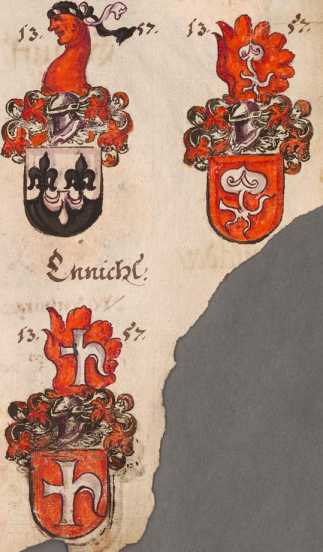 13. 57.
13. 57.
Ennickl.
13. 57.